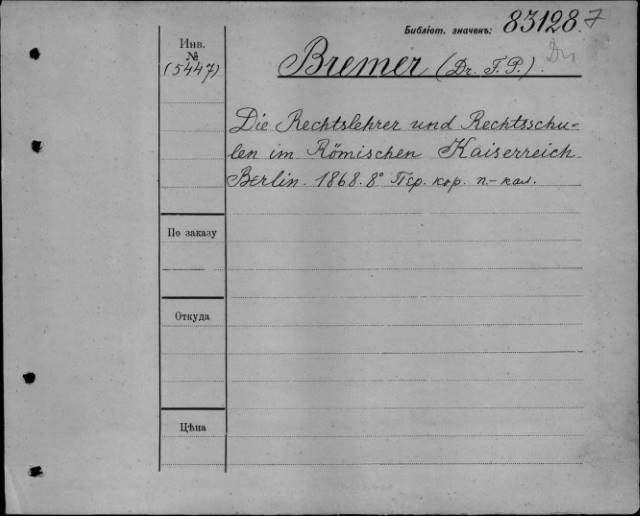 Библіот. значекъ: 83128 7
Dr.
Инв. № (5447)
Bremer (Dr. F. P.).
Die Rechtslehrer und Rechtsschu-
len im Römischen Kaiserreich.
Berlin. 1868. 8° Пер. кор. п.-кал.
По заказу
Откуда
Цѣна